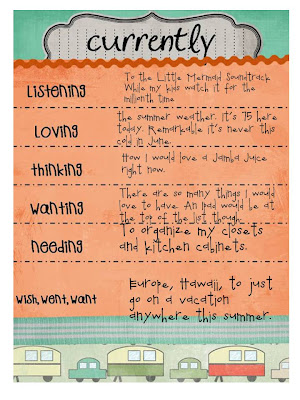 currently
Listening
To the Little Mermaid Soundtrack
While my kids watch it for the
millionth time
Loving
the summer weather. It's 75 here
today. Remarkable it's never this
cold in June.
thinking
How I would love a Jamba Juice
right now.
wanting
There are so many things I would
love to have. An ipad would be at
the top of the list though.
needing
To organize my closets
and kitchen cabinets.
wish, went, want
Europe, Hawaii, to just
go on a vacation
anywhere this summer.